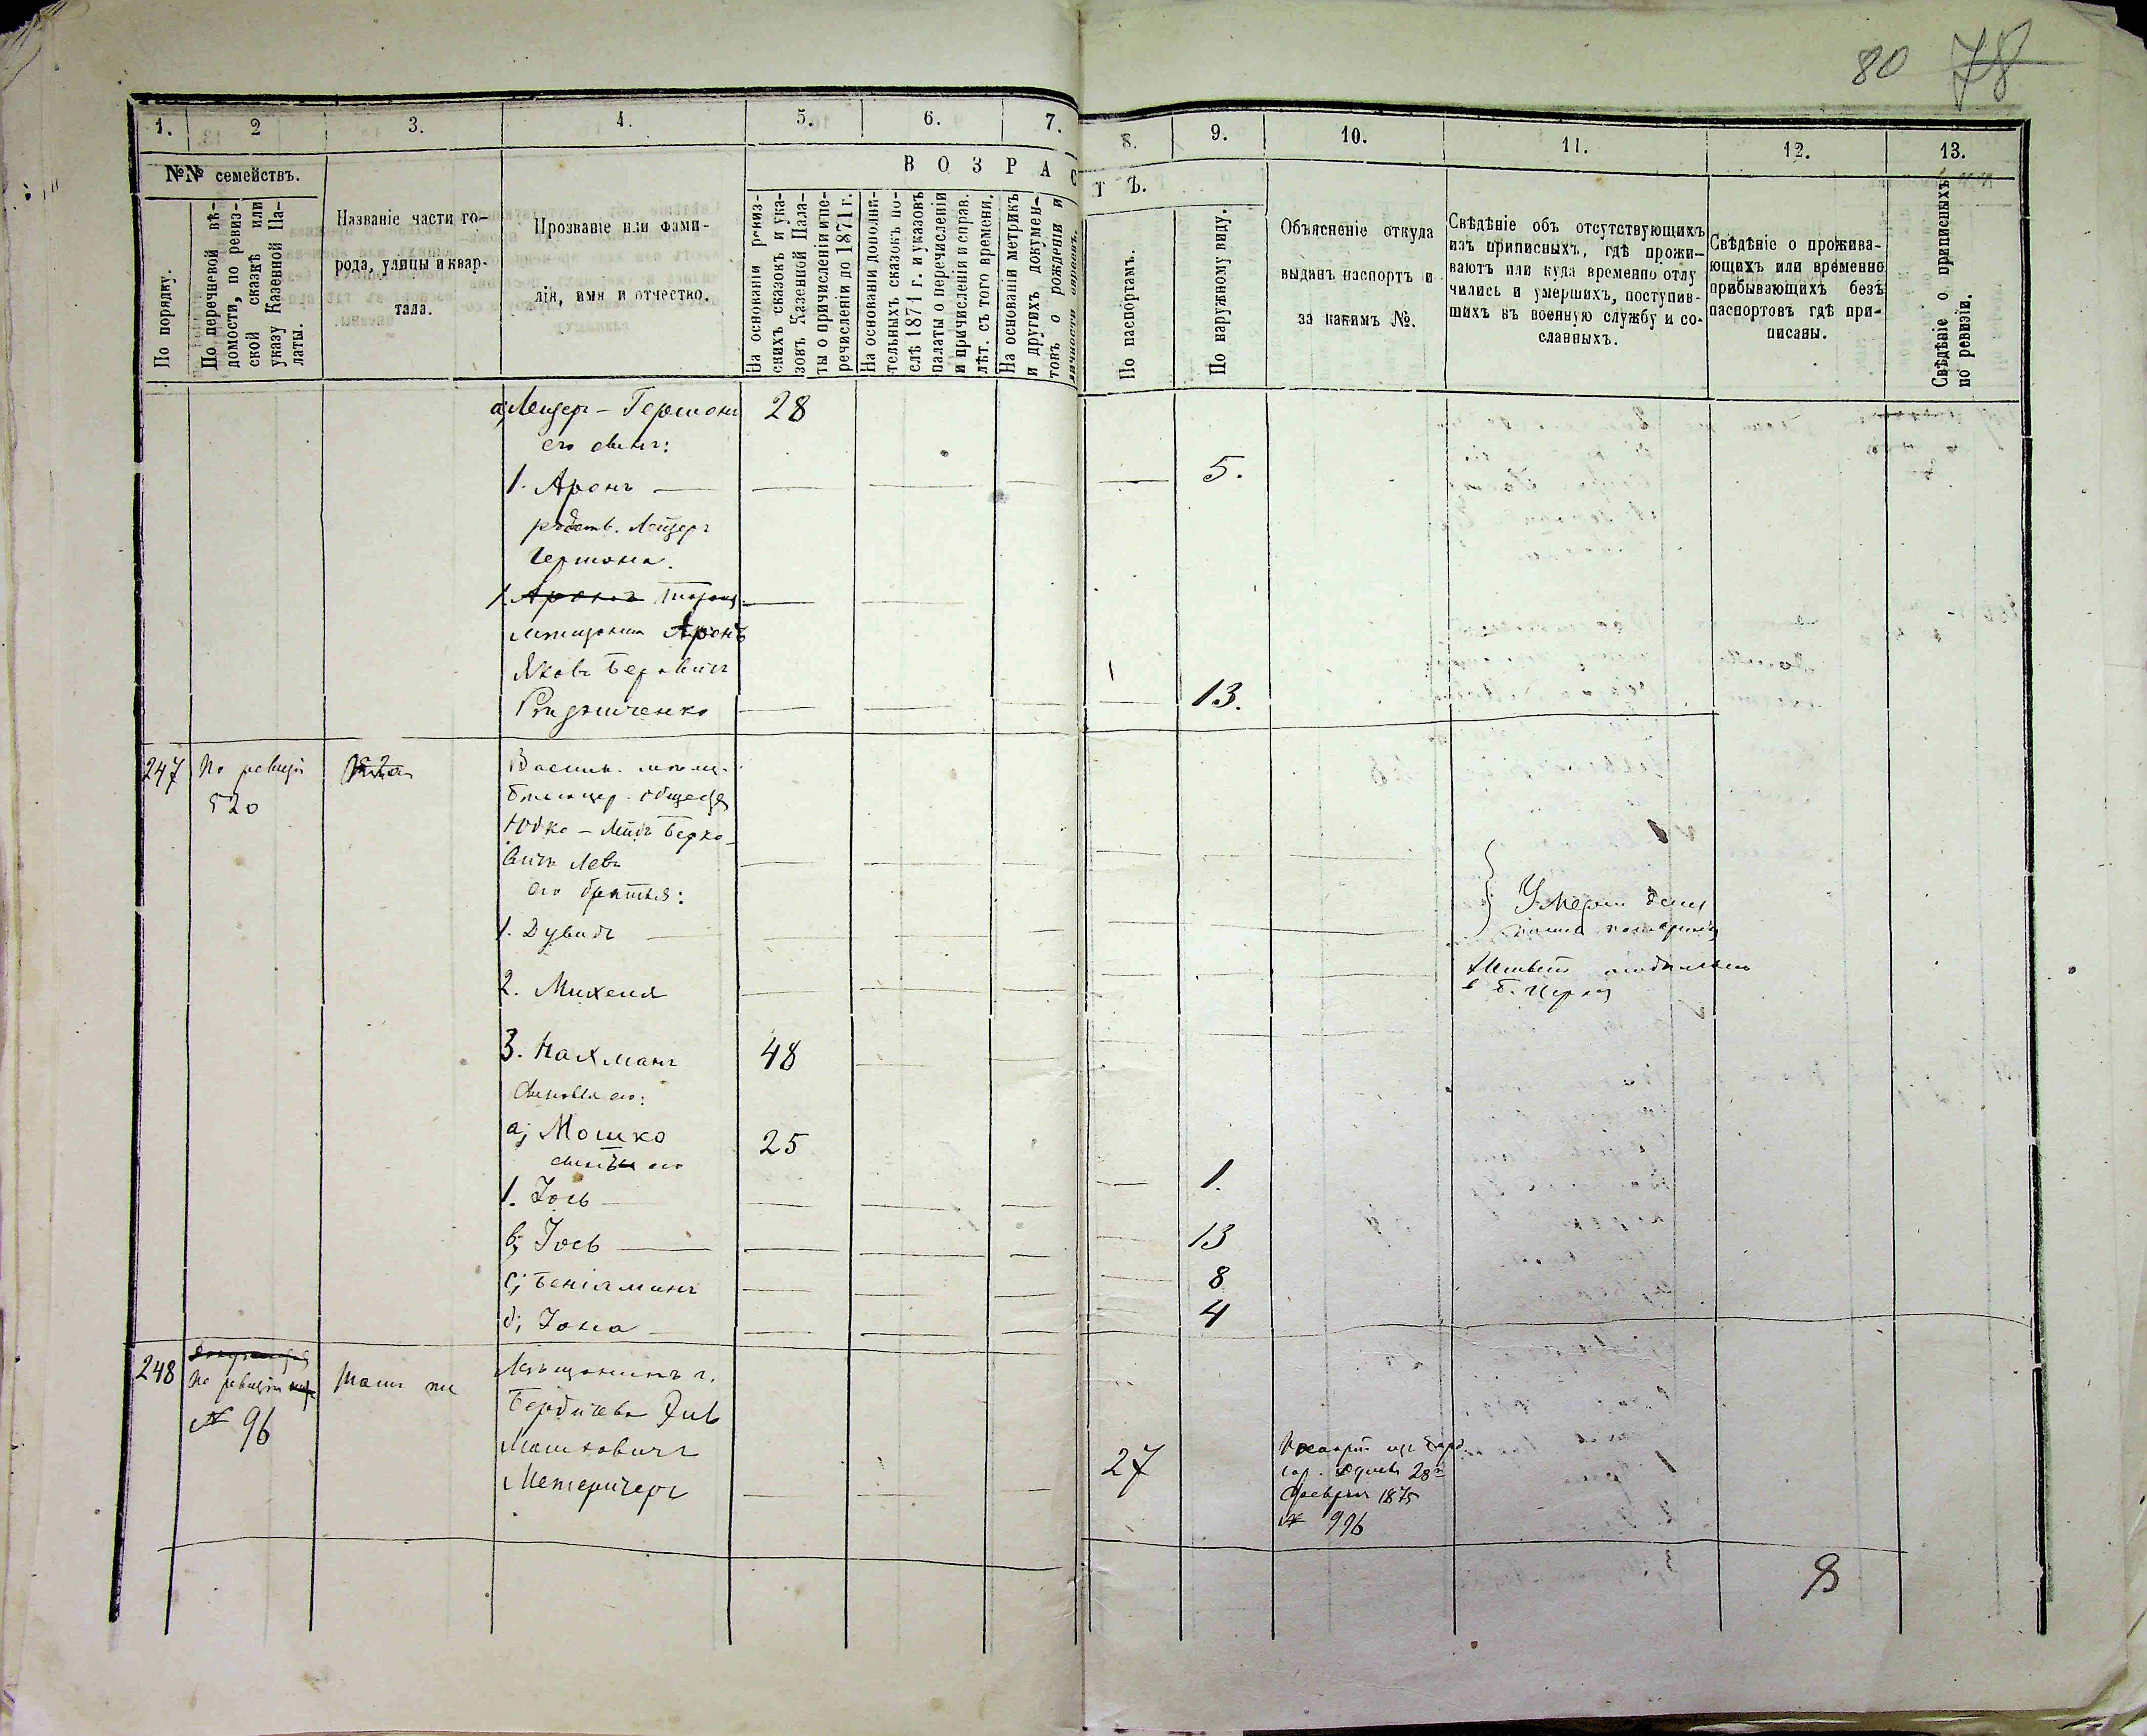 80 78
1. 2 3. 4. 5. 6. 7. 8. 9. 10. 11. 12. 13.
№№ семействъ.
По порядку.
По перечневой вѣ-
домости, по ревиз-
ской сказкѣ или
указу Казенной Па-
латы.
Названіе части го-
рода, улицы и квар-
тала.
Прозваніе или фами-
лія, имя и отчество.
ВОЗРАСТЪ.
На основаніи ревиз-
скихъ сказокъ и ука-
зовъ Казенной Пала-
ты о причисленіи и пе-
речисленіи до 1871 г.
На основаніи дополни-
тельныхъ сказокъ по-
слѣ 1871 г. и указовъ
палаты о перечисленіи
и причисленіи и справ.
лѣт. съ того времени.
На основаніи метрикъ
и другихъ докумен-
товъ о рожденіи и
По паспортамъ.
По наружному виду.
Объясненіе откуда
выданъ паспортъ и
за какимъ №.
Свѣдѣніе объ отсутствующихъ
изъ приписныхъ, гдѣ прожи-
ваютъ или куда временно отлу
чились и умершихъ, поступив-
шихъ въ военную службу и со-
сланныхъ.
Свѣдѣніе о прожива-
ющихъ или временно
прибывающихъ безъ
паспортовъ гдѣ при-
писаны.
Свѣдѣніе о приписныхъ
по ревизіи.
а; Лейзеръ - Гершонъ 28
его сынъ:
1. Аронъ 5.
родств. Лейзеръ
Гершона.
1. Аронъ
мѣщанинъ Аронъ
Яковъ Беровичъ
13.
247 По ревизіи
520
Васильк. мѣщ.
Бѣлоцер. общества
Юдко - Лейбъ Берко-
вичъ Левъ
его братья:
1. Дувидъ
Умерли
2. Михель
Живетъ отдѣльно
в Б. Церкви
3. Нахманъ 48
сыновья его:
а; Мошко 25
сынъ его
1. Іось 1.
b; Іось 13
c; Беніаминъ 8
d; Іона 4
248 По ревизіи
№ 96
тамъ же
Мѣщанинъ г.
Бердичева Зивъ
Мошковичъ
27
Паспортъ изъ Берд.
гор. Думы 28го
Февраля 1875
№ 996
8